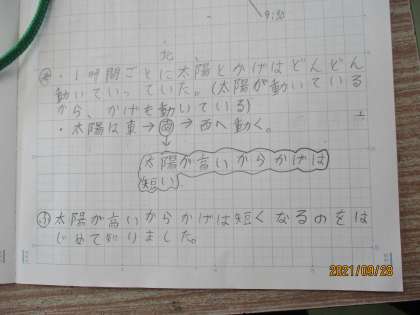 9:30
北
ま ・1時間ごとに太陽とかげはどんどん
動いていっていた。(太陽が動いている
から、かげも動いている)
・太陽は東→南→西へ動く。
↓
太陽が高いからかげは
短い
ふ 太陽が高いからかげは短くなるのをは
じめて知りました。
2021/09/28